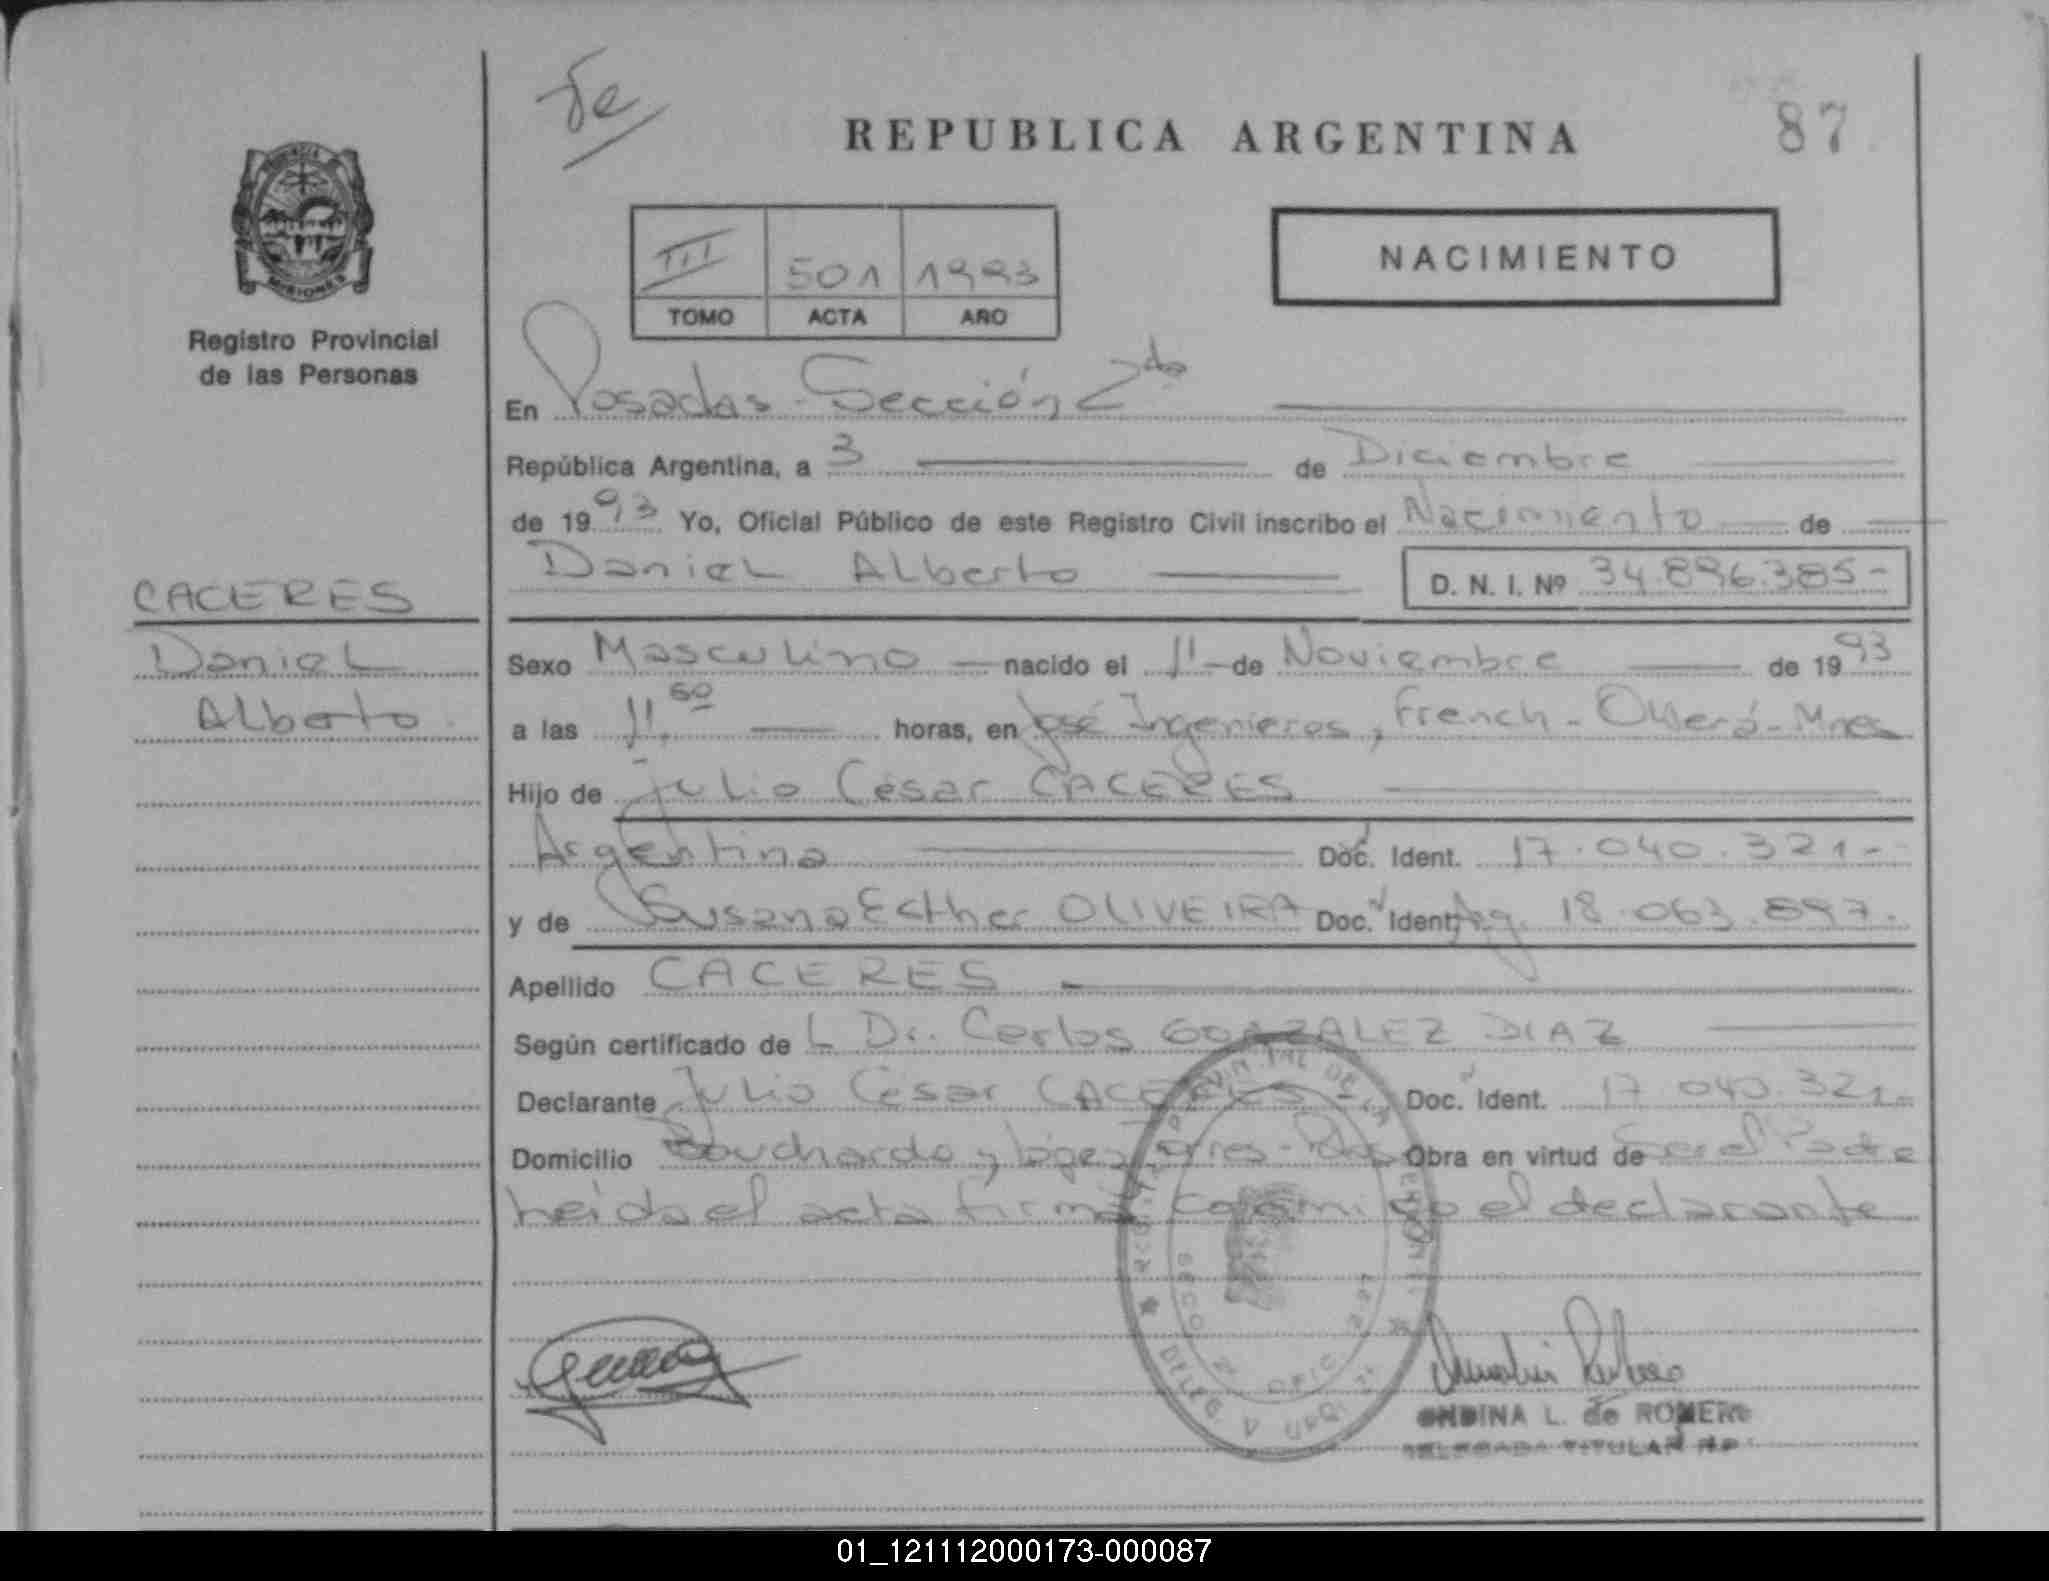 87
REPUBLICA ARGENTINA
NACIMIENTO
III 501 1993
TOMO ACTA AÑO
MISIONES
Registro Provincial
de las Personas
CACERES
Daniel
Alberto
En Posadas - Sección 2da
República Argentina, a 3 de Diciembre
de 1993 Yo, Oficial Público de este Registro Civil inscribo el Nacimiento de
Daniel Alberto D. N. I. Nº 34.896.385-
Sexo Masculino nacido el 11 de Noviembre de 1993
a las 11.50 horas, en José Ingenieros, French - Oberá - Mnes
Hijo de Julio César CACERES
Argentina Doc. Ident. 17.040.321-
y de Susana Esther OLIVEIRA Doc. Ident. Arg. 18.063.897.
Apellido CACERES
Según certificado de L Dr. Carlos GONZALEZ DIAZ
Declarante Julio César CACERES Doc. Ident. 17.040.321-
Domicilio Bouchardo y López Torres - Pdas Obra en virtud de ser el Padre
Leída el acta firma conmigo el declarante
ONDINA L. de ROMERO
DELEGADA TITULAR
01_121112000173-000087